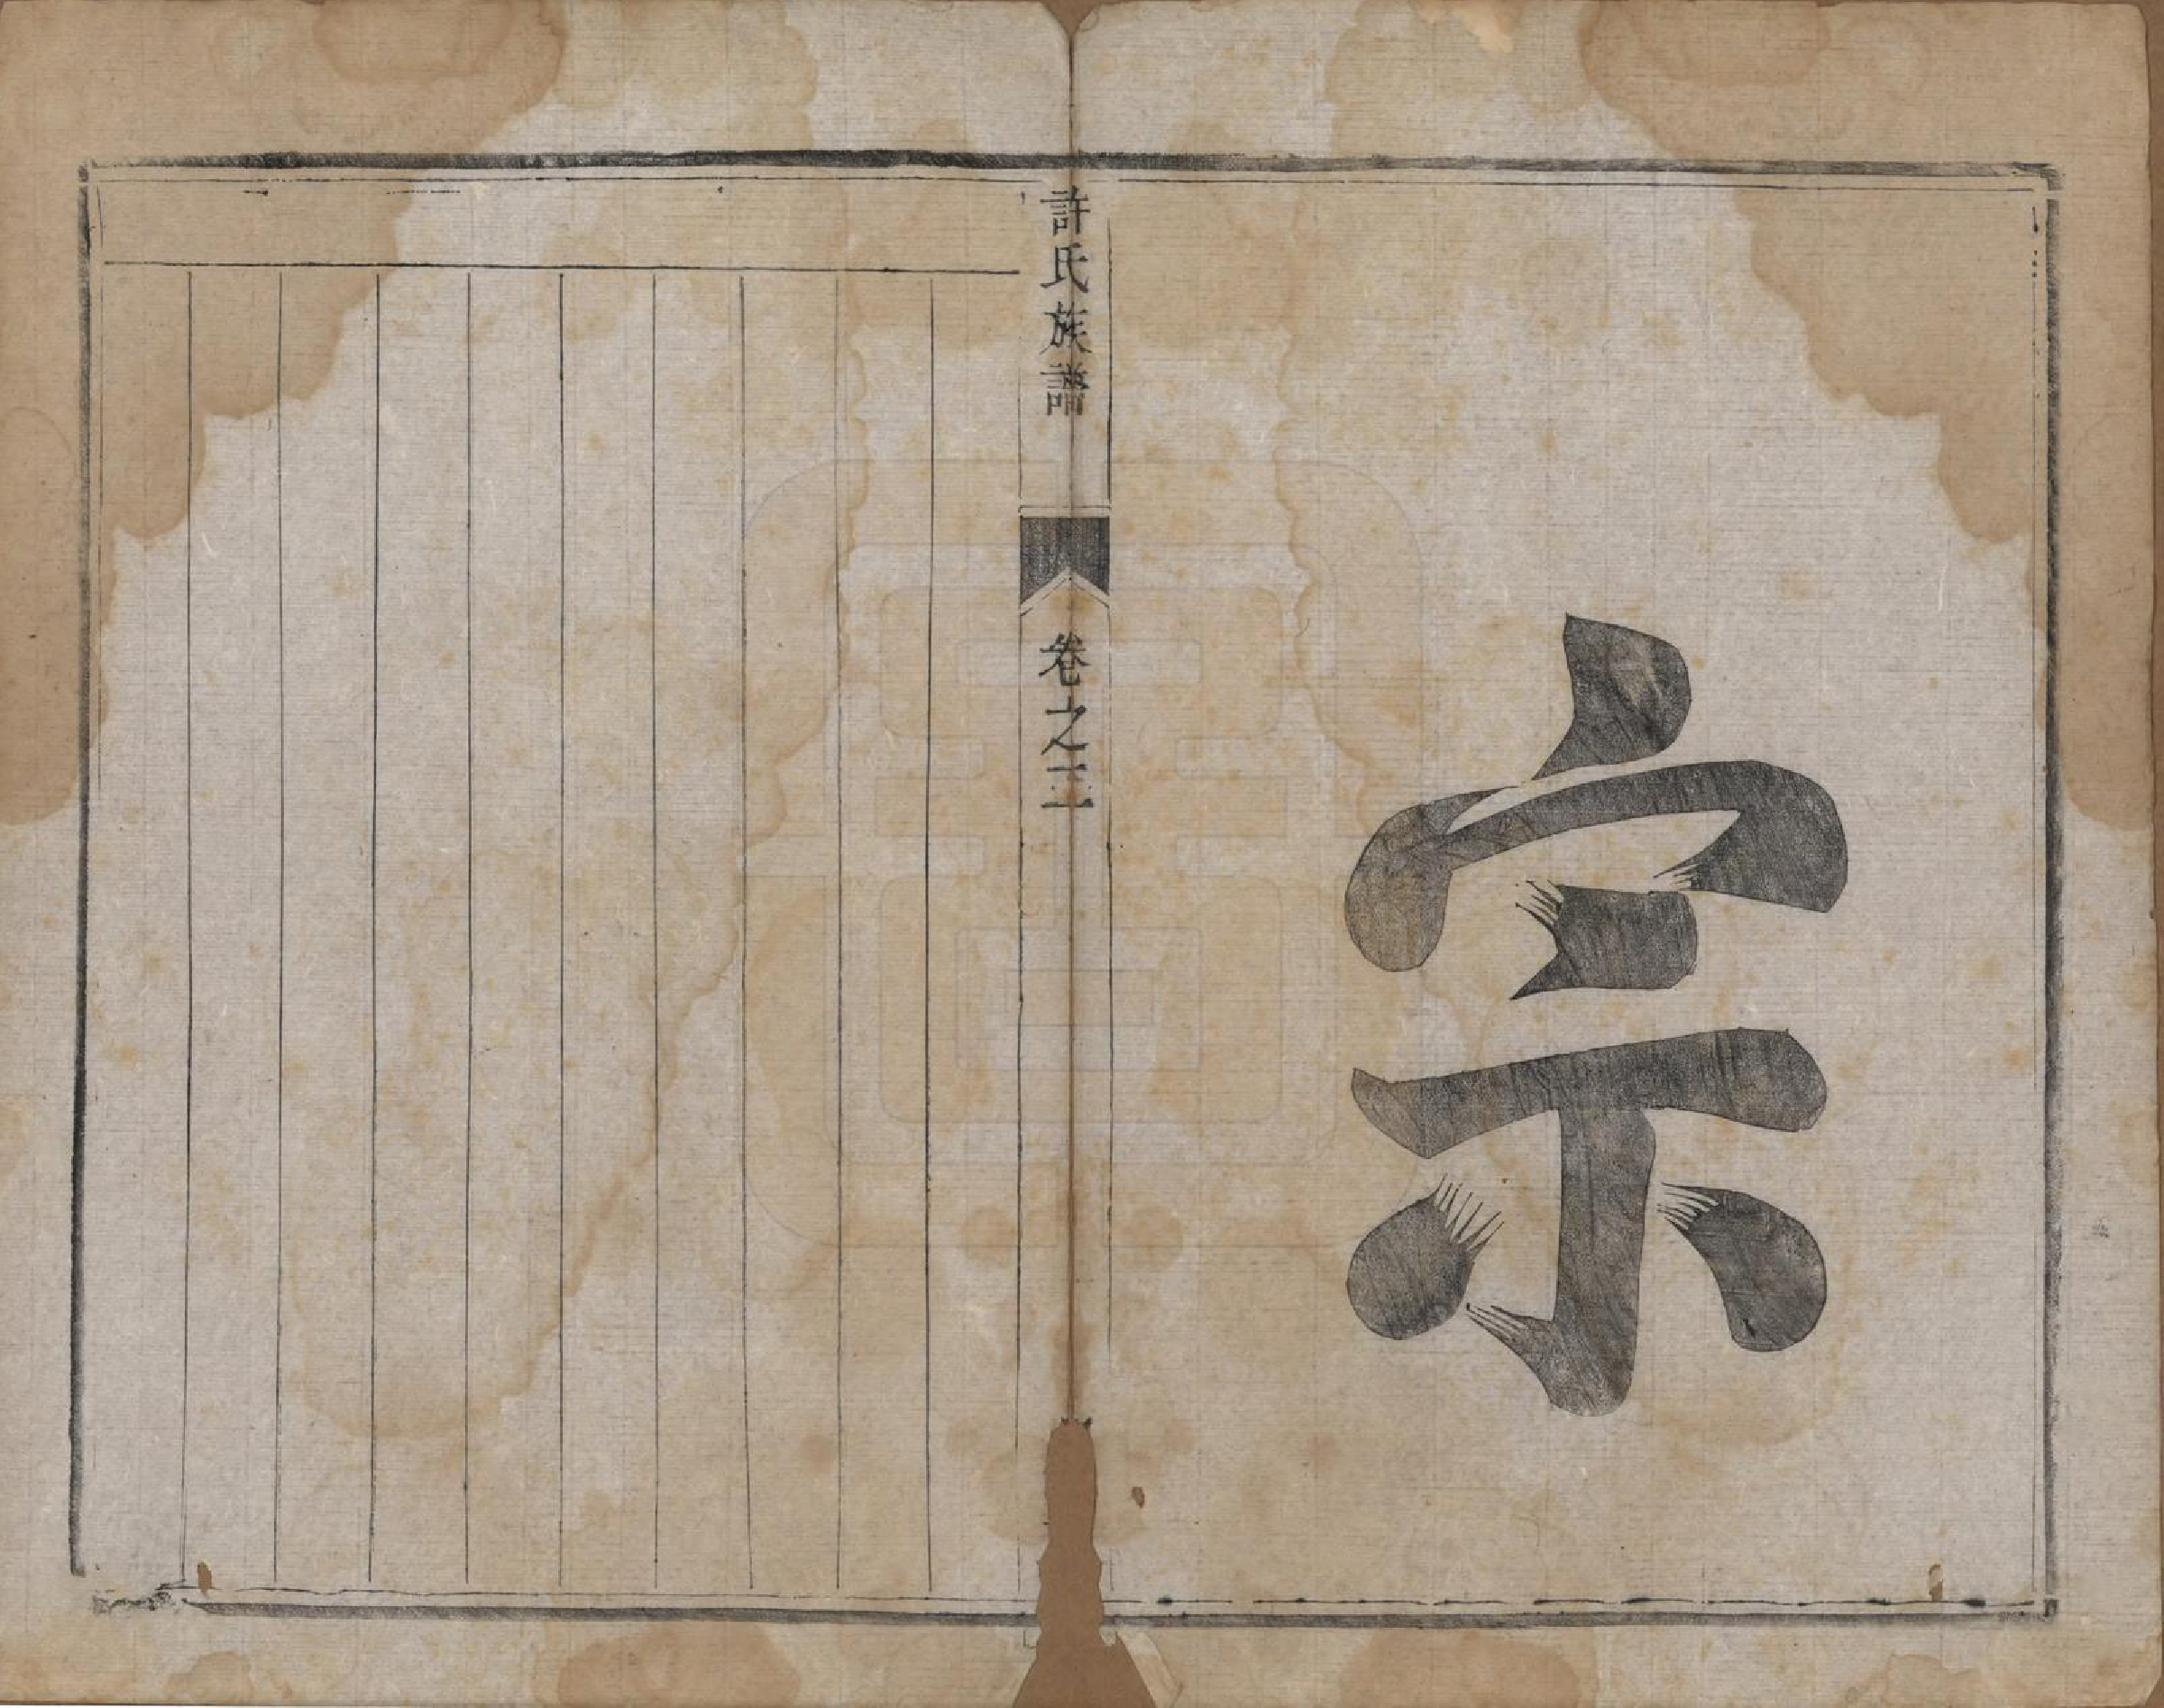 宗
許氏族譜
卷之三